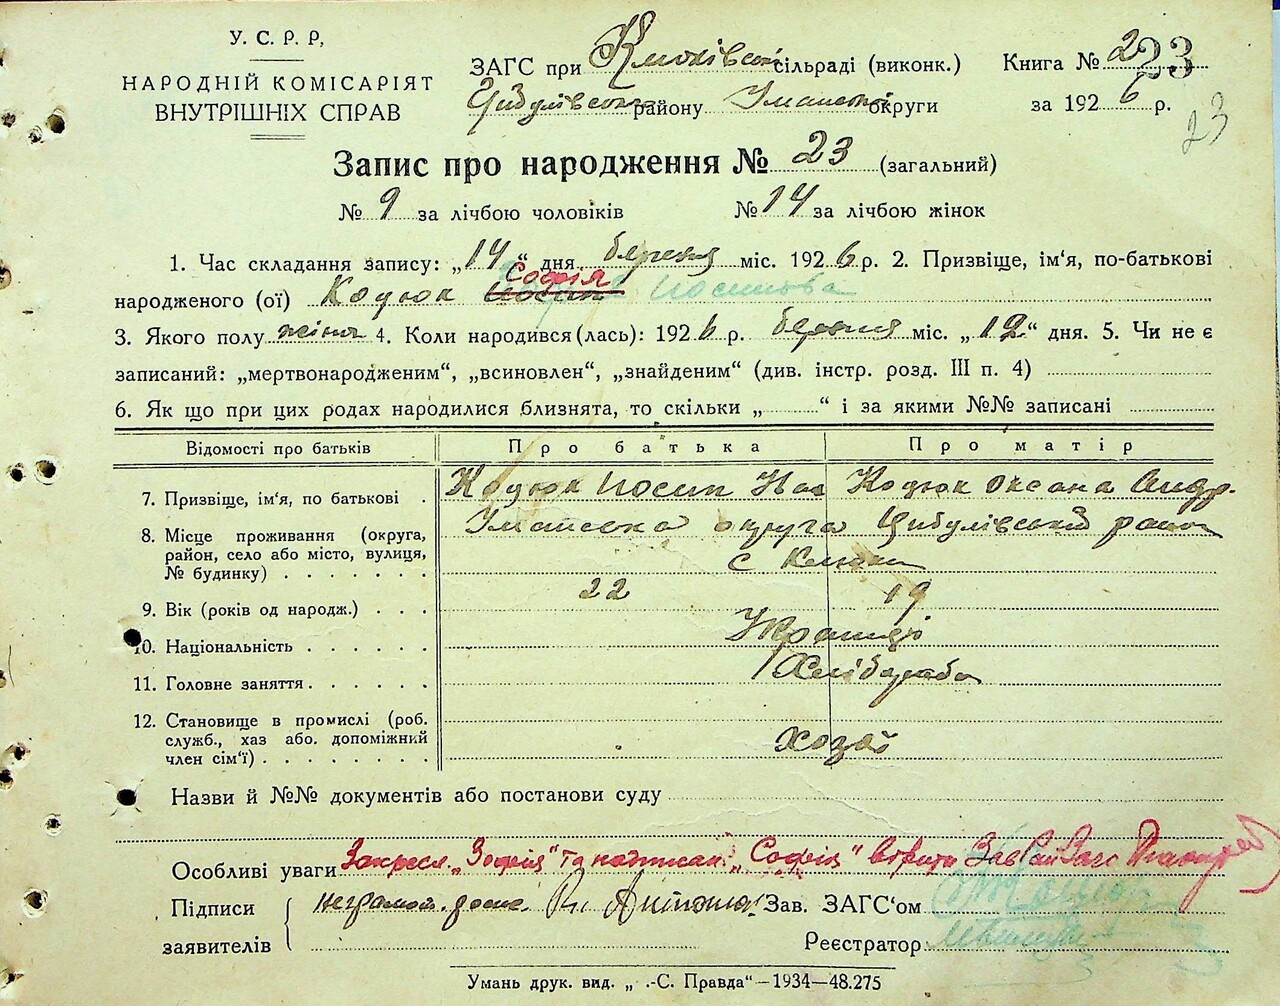 У. С. Р. Р,
НАРОДНІЙ КОМІСАРІЯТ
ВНУТРІШНІХ СПРАВ
ЗАГС при сільраді (виконк.) Книга № 2 23
Цибулівськ району Уманськ округи за 1926 р.
23
Запис про народження № 23 (загальний)
№ 9 за лічбою чоловіків № 14 за лічбою жінок
1. Час складання запису: „14“ дня березня міс. 1926 р. 2. Призвіще, ім‘я, по-батькові
Софія
народженого (ої) Кодюк Йосипова
3. Якого полу жіноч 4. Коли народився (лась): 1926 р. березня міс. „12“ дня. 5. Чи не є
записаний: „мертвонародженим“, „всиновлен“, „знайденим“ (див. інстр. розд. III п. 4)
6. Як що при цих родах народилися близнята, то скільки „ “ і за якими №№ записані
Відомості про батьків Про батька Про матір
7. Призвіще, ім‘я, по батькові . Кодюк Йосип Кодюк Оксана Андр.
8. Місце проживання (округа, район, село або місто, вулиця, № будинку) . . . . . . . Уманська округа Цибулівський район
с
9. Вік (років од народж.) . . . 22 19
10. Національність . . . . . . Українці
11. Головне заняття . . . . . . Хлібороби
12. Становище в промислі (роб. служб., хаз або. допоміжний член сім‘ї) . . . . . . . . хозяї
Назви й №№ документів або постанови суду
Особливі уваги Закресл. „Зофія“ та надписан „Софія“ вірити Зав Рай Загс
Підписи заявителів неграмот. Зав. ЗАГС‘ом
Реєстратор
Умань друк. вид. „ .-С. Правда“ —1934—48.275